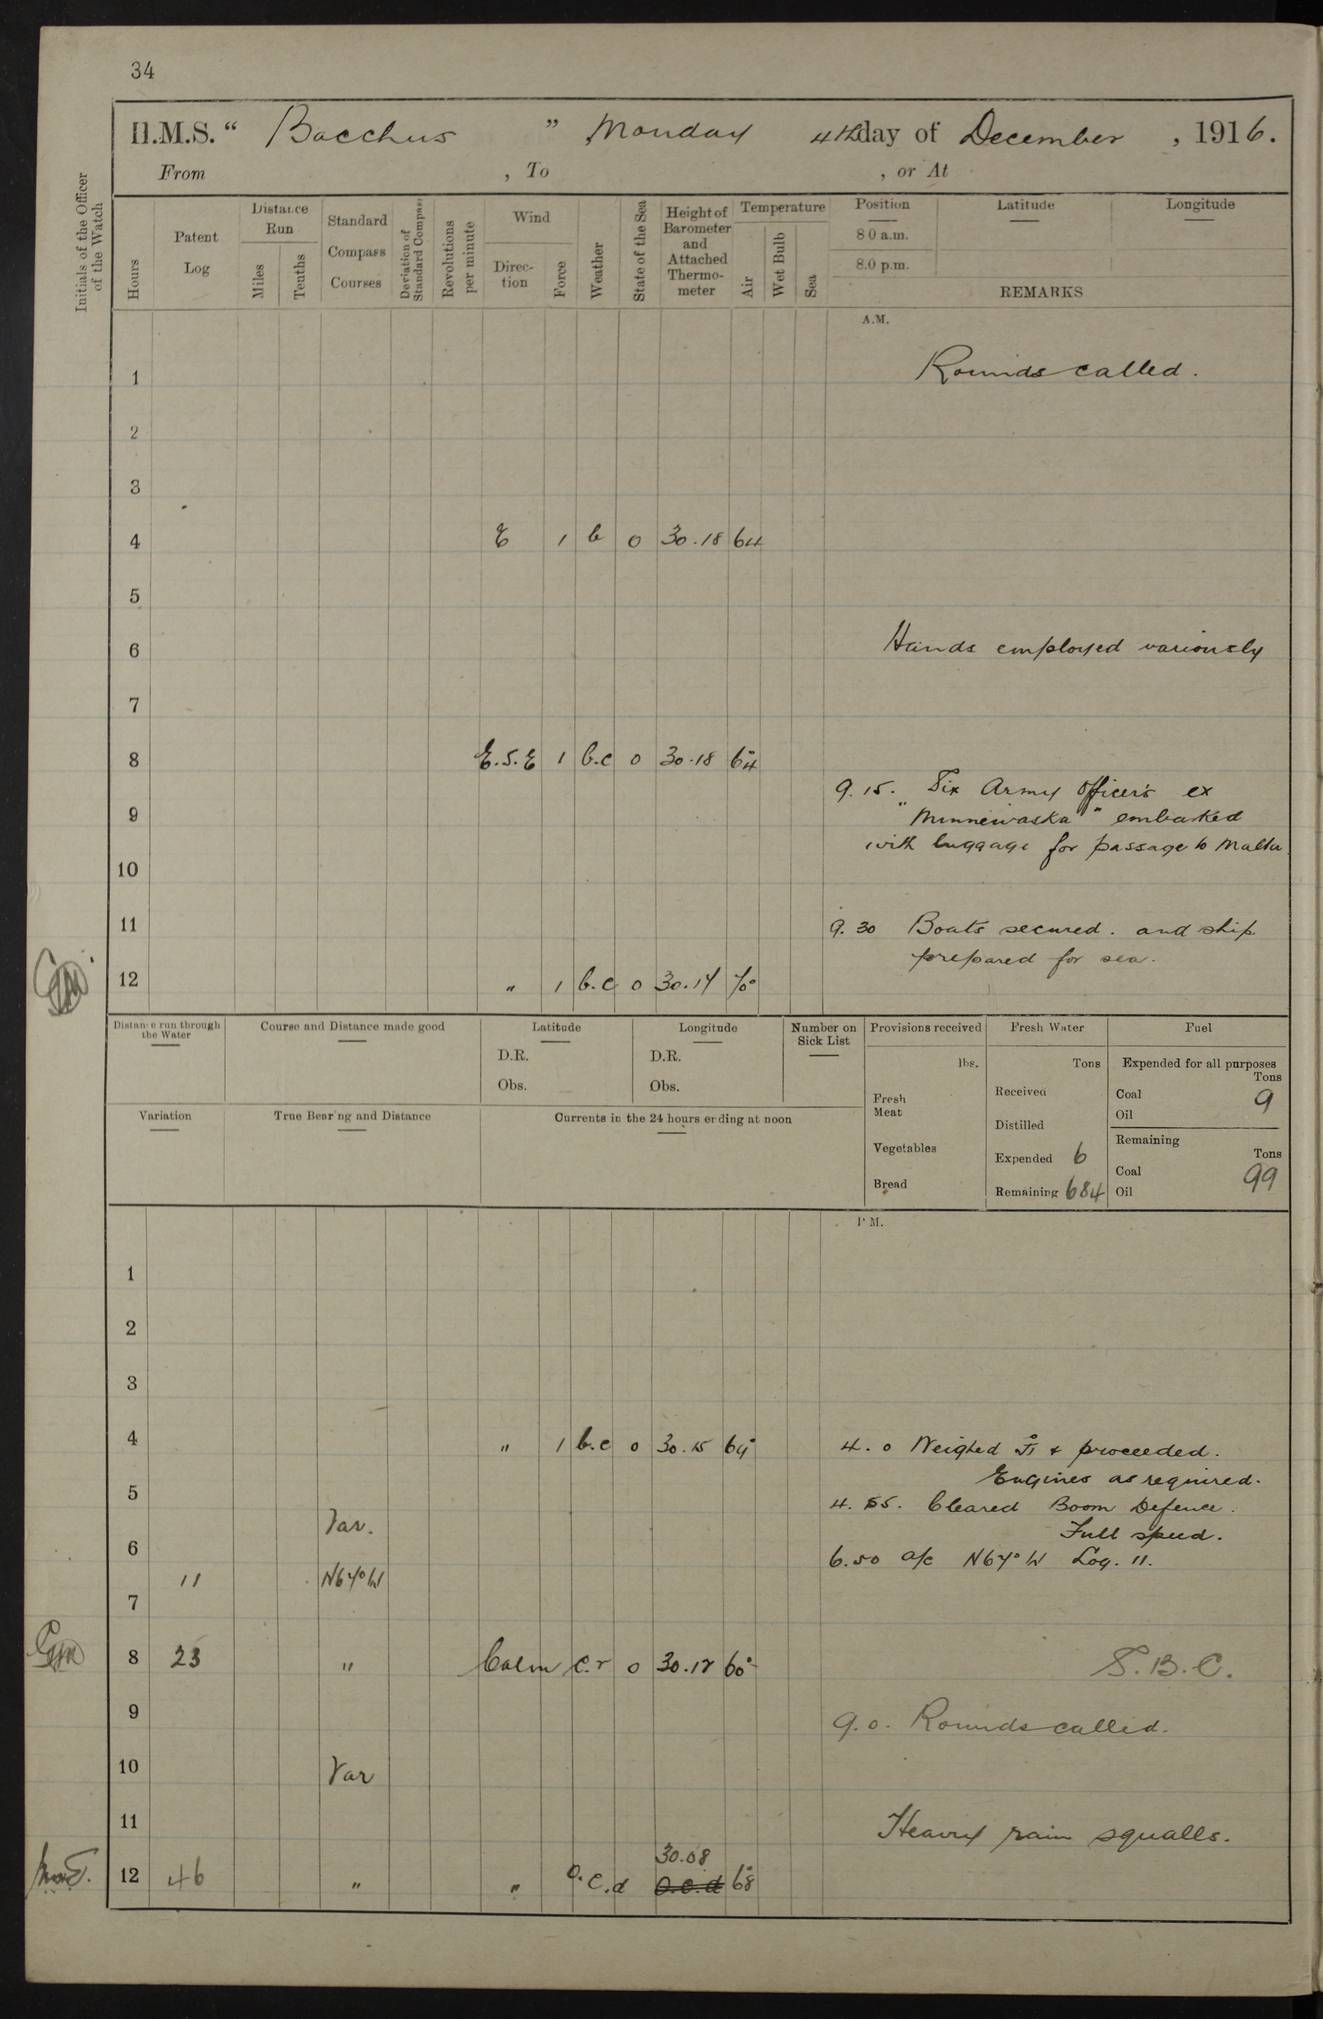 34
H.M.S. “ Bacchus ” Monday 4th day of December , 1916.
From , To , or At
Initials of the Officer of the Watch
Hours
Patent Log
Distance Run
Miles
Tenths
Standard Compass Courses
Deviation of Standard Compass
Revolutions per minute
Wind
Direction
Force
Weather
State of the Sea
Height of Barometer and Attached Thermometer
Temperature
Air
Wet Bulb
Sea
Position Latitude Longitude
8 0 a.m.
8.0 p.m.
REMARKS
A.M.
1 Rounds called.
2
3
4 E 1 b 0 30.18 64
5
6 Hands employed variously
7
8 E.S.E 1 b.c 0 30.18 64°
9.15. Six Army Officers ex
9 "Minnewaska" embarked
with luggage for passage to Malta
10
11 9.30 Boats secured. and ship
prepared for sea.
12 " 1 b.c 0 30.14 70°
Distance run through the Water
Course and Distance made good
Latitude
D.R.
Obs.
Longitude
D.R.
Obs.
Number on Sick List
Provisions received
lbs.
Fresh Meat
Vegetables
Bread
Fresh Water
Tons
Received
Distilled
Expended 6
Remaining 684
Fuel
Expended for all purposes
Tons
Coal 9
Oil
Remaining
Tons
Coal 99
Oil
Variation
True Bearing and Distance
Currents in the 24 hours ending at noon
P.M.
1
2
3
4 " 1 b.c 0 30.15 69° 4.0 Weighed & proceeded.
Engines as required.
5 4.55. Cleared Boom Defence.
Var. Full speed.
6 6.50 a/c N67°W Log. 11.
11 N67°W
7
8 23 " Calm c.r 0 30.12 60° S.B.C.
9 9.0. Rounds called.
10 Var
11 Heavy rain squalls.
30.08
12 46 " " o.c.d o.c.d 68°